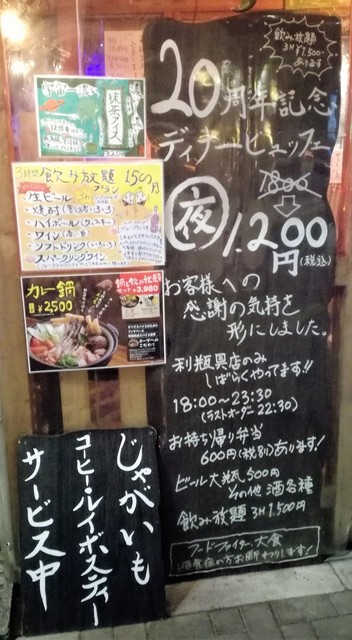 飲み放題
3H ¥1,500-
あります
20周年記念
ディナービュッフェ
1800-
夜 1.200円(税込)
お客様への
感謝の気持を
形にしました。
利瓶具店のみ
しばらくやってます!!
18:00〜23:30
(ラストオーダー 22:30)
お持ち帰り弁当
600円(税別)あります!
ビール大瓶 500円
その他 酒各種
飲み放題 3H 1,500円
フードファイター 大食
抹茶アイス
3時間 飲み放題 1500円
プラン
生ビール
・焼酎
・ハイボール
・ワイン(赤・白)
・ソフトドリンク
・スパークリングワイン
カレー鍋
¥2,500
¥3,980
じゃがいも
コーヒー・ルイボスティー
サービス中